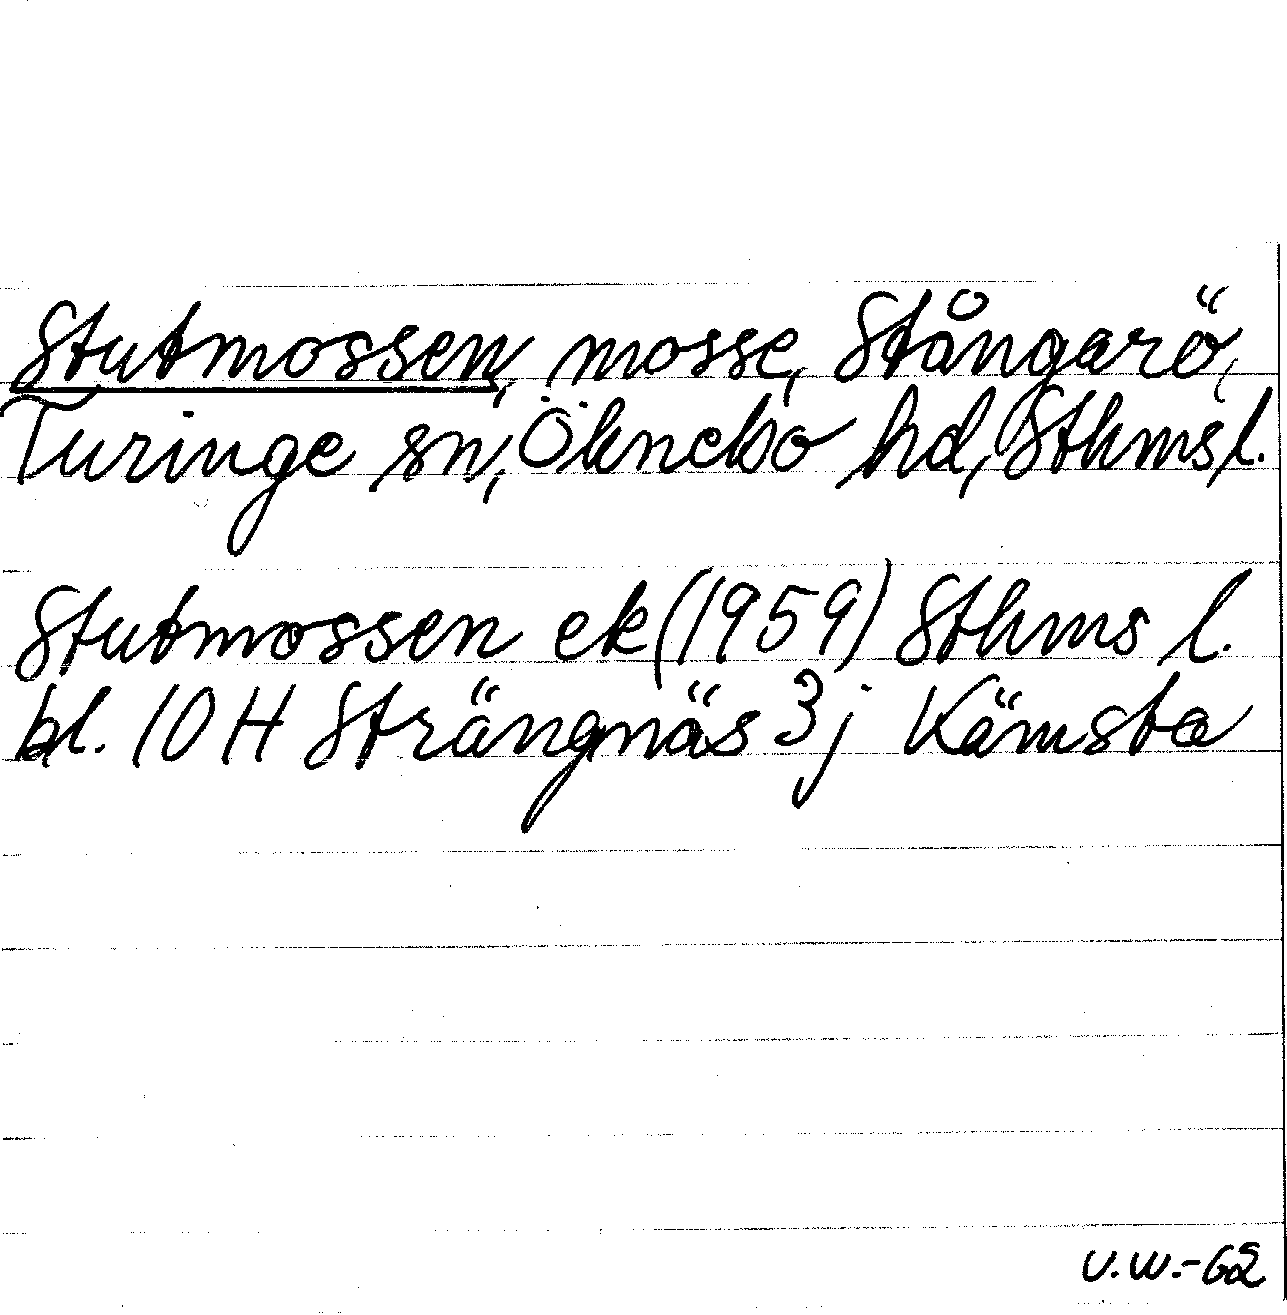 Stutmossen, mosse, Stångarö,
Turinge sn, Öknebo hd, Sthms l.
Stutmossen ek (1959) Sthms l.
bl. 10 H Strängnäs 3j Kämsta
V.W.-62